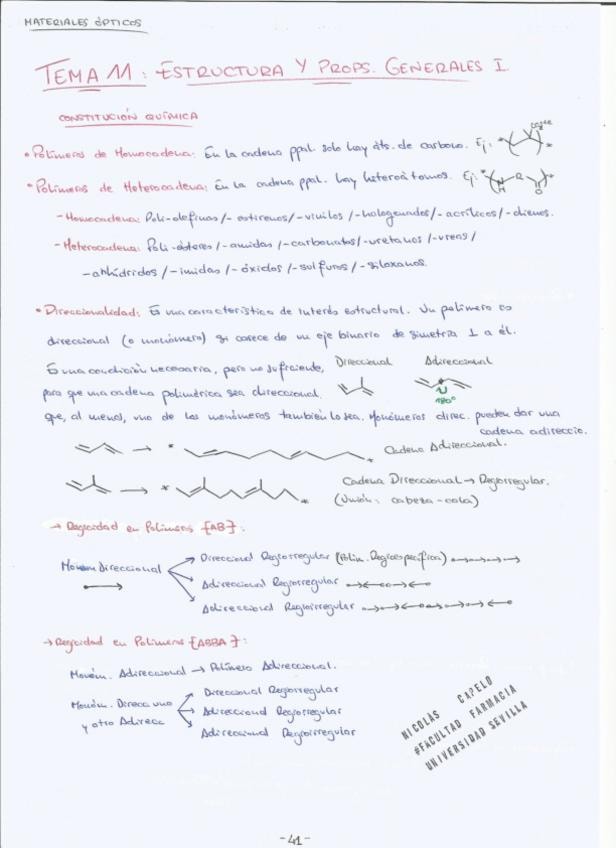 MATERIALES ÓPTICOS
TEMA 11: ESTRUCTURA Y PROPS. GENERALES I
CONSTITUCIÓN QUÍMICA
• Polímeros de Homocadena: En la cadena ppal. solo hay áts. de carbono. Ej:
• Polímeros de Heterocadena: En la cadena ppal. hay heteroátomos. Ej: * N H R O *
- Homocadena: Poli-olefinas /- estirenos /- vinilos /- halogenados /- acrílicos /- dienos.
- Heterocadena: Poli-ésteres /- amidas /- carbonatos /- uretanos /- ureas /
- anhídridos /- imidas /- óxidos /- sulfuros /- siloxanos.
• Direccionalidad: Es una característica de interés estructural. Un polímero es
direccional (o monómero) si carece de un eje binario de simetría ⊥ a él.
Es una condición necesaria, pero no suficiente, Direccional Adireccional
para que una cadena polimérica sea direccional. 180°
que, al menos, uno de los monómeros también lo sea. Monómeros direc. pueden dar una
cadena adireccio.
→ * * Cadena Adireccional.
→ * * Cadena Direccional → Regiorregular.
(Unión: cabeza-cola)
→ Regicidad en Polímeros {AB}:
Monóm Direccional Direccional Regiorregular (Polim. Regioespecífica)
Adireccional Regiorregular
Adireccional Regioirregular
→ Regicidad en Polímeros {ABBA}:
Monóm. Adireccional → Polímero Adireccional.
Monóm. Direcc uno Direccional Regiorregular
y otro Adirecc Adireccional Regiorregular
Adireccional Regioirregular
NICOLÁS CAPELO
#FACULTAD FARMACIA
UNIVERSIDAD SEVILLA
-41-